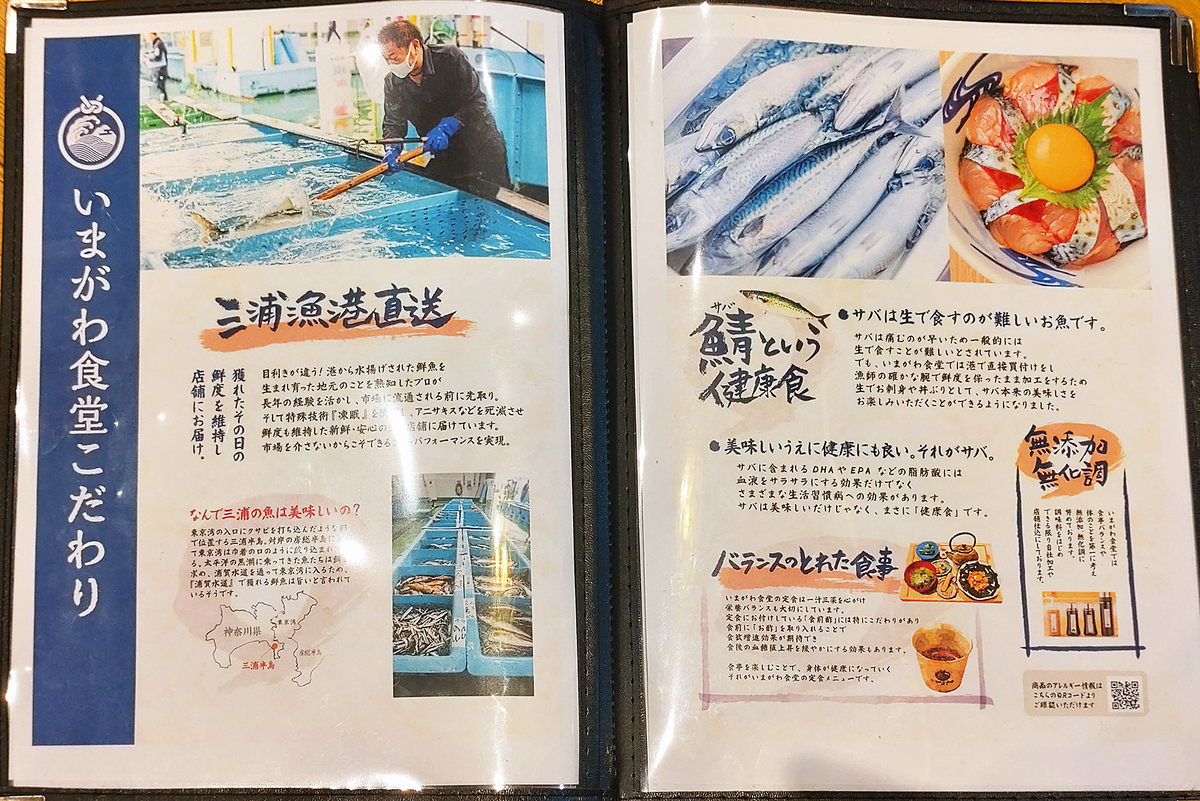 いまがわ食堂こだわり
三浦漁港直送
獲れたその日の
鮮度を維持し
店舗にお届け。
目利きが違う!港から水揚げされた鮮魚を
生まれ育った地元のことを熟知したプロが
長年の経験を活かし、市場に流通される前に先取り。
そして特殊技術『凍眠』を、アニサキスなどを死滅させ
鮮度も維持した新鮮・安心の店舗に届けています。
市場を介さないからこそできるパフォーマンスを実現。
なんで三浦の魚は美味しいの?
東京湾の入口にクサビを打ち込んだような形
で位置する三浦半島。対岸の房総半島に
て東京湾は巾着の口のように絞り込まれ
る。太平洋の黒潮に乗ってきた魚たちは餌
求め、浦賀水道を通って東京湾に入るため、
『浦賀水道』で獲れる鮮魚は旨いと言われて
いるそうです。
神奈川県
東京湾
房総半島
三浦半島
サバ
鯖という
健康食
●サバは生で食すのが難しいお魚です。
サバは痛むのが早いため一般的には
生で食すことが難しいとされています。
でも、いまがわ食堂では港で直接買付けをし
漁師の確かな腕で鮮度を保ったまま加工をするため
生でお刺身や丼ぶりとして、サバ本来の美味しさを
お楽しみいただくことができるようになりました。
●美味しいうえに健康にも良い。それがサバ。
サバに含まれるDHAやEPAなどの脂肪酸には
血液をサラサラにする効果だけでなく
さまざまな生活習慣病への効果があります。
サバは美味しいだけじゃなく、まさに「健康食」です。
無添加
無化調
いまがわ食堂では
食事バランスや
体のことを第一に考え
無添加・無化調に
努めております。
調味料をはじめ
できる限り自社加工や
店舗仕込にしております。
バランスのとれた食事
いまがわ食堂の定食は一汁三菜を心がけ
栄養バランスも大切にしています。
定食にお付けしている「食前酢」には特にこだわりがあり
食前に「お酢」を取り入れることで
食欲増進効果が期待でき
食後の血糖値上昇を緩やかにする効果もあります。
食事を楽しむことで、身体が健康になっていく
それがいまがわ食堂の定食メニューです。
商品のアレルギー情報は
こちらのQRコードより
ご確認いただけます